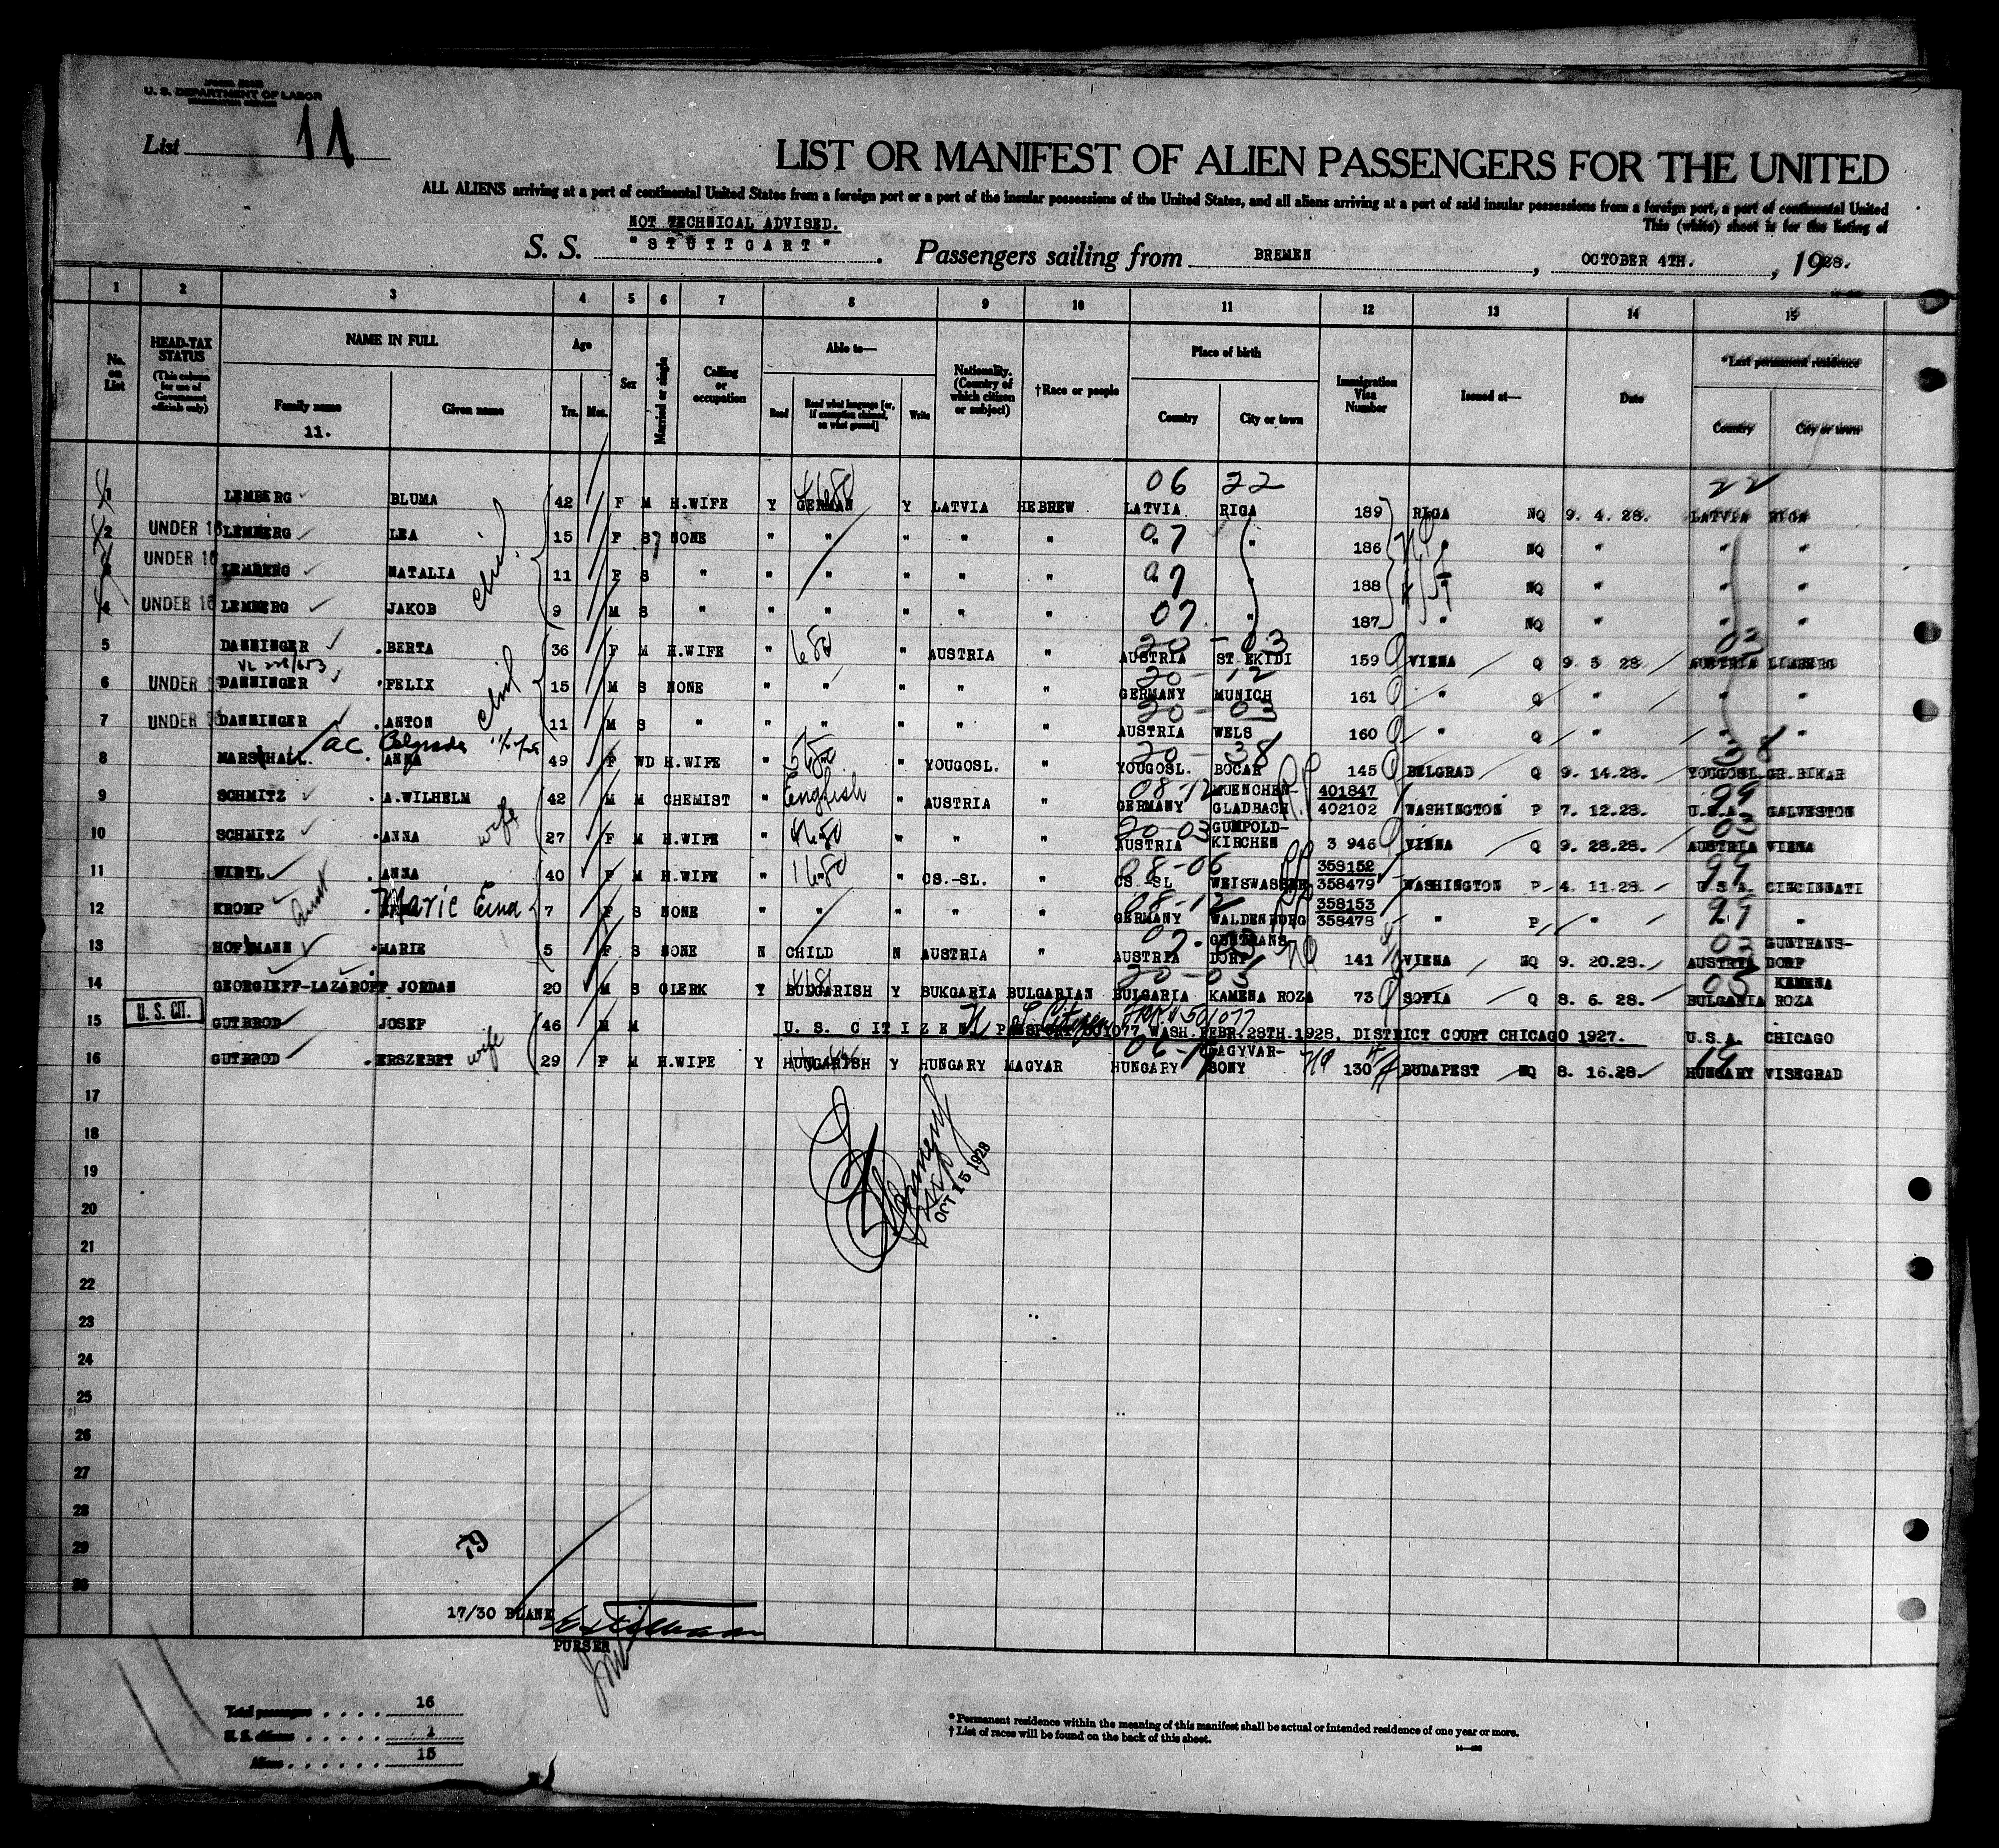 U. S. DEPARTMENT OF LABOR
List 11
LIST OR MANIFEST OF ALIEN PASSENGERS FOR THE UNITED
ALL ALIENS arriving at a port of continental United States from a foreign port or a port of the insular possessions of the United States, and all aliens arriving at a port of said insular possessions from a foreign port, a port of continental United
This (white) sheet is for the listing of
NOT TECHNICAL ADVISED.
S. S. "STUTTGART". Passengers sailing from BREMEN, OCTOBER 4TH., 1928.
1 2 3 4 5 6 7 8 9 10 11 12 13 14 15
No. on List
HEAD-TAX STATUS (This column for use of Government officials only)
NAME IN FULL
Family name
11.
Given name
Age
Yrs. Mos.
Sex
Married or single
Calling or occupation
Able to—
Read
Read what language [or, if exemption claimed, on what ground]
Write
Nationality. (Country of which citizen or subject)
†Race or people
Place of birth
Country
City or town
Immigration Visa Number
Issued at—
Date
*Last permanent residence
Country
City or town
06 22 22
1 LEMBERG BLUMA 42 F M H.WIFE Y GERMAN Y LATVIA HEBREW LATVIA RIGA 189 RIGA NQ 9. 4. 28. LATVIA RIGA
2 UNDER 16 LEMBERG LEA 15 F S NONE " " " " " 07 " 186 " NQ " " "
3 UNDER 16 LEMBERG NATALIA 11 F S " " " " " " 07 " 188 " NQ " " "
4 UNDER 16 LEMBERG JAKOB 9 M S " " " " " " 07 " 187 " NQ " " "
20 - 03 03
5 DANNINGER BERTA 36 F M H.WIFE " 680 " AUSTRIA " AUSTRIA ST EKIDI 159 VIENA Q 9. 5 28 AUSTRIA LIMBERG
20 - 12
6 UNDER DANNINGER FELIX 15 M S NONE " " " " " GERMANY MUNICH 161 " Q " " "
20 - 03
7 UNDER DANNINGER ANTON 11 M S " " " " " " AUSTRIA WELS 160 " Q " " "
ac Belgrade
20 - 38
8 MARSCHALL. ANNA 49 F WD H.WIFE " " YOUGOSL. " YOUGOSL. BOCAR 145 BELGRAD Q 9. 14.28. YOUGOSL. GR.BIKAR
08-12 MUENCHEN- 401847 99
9 SCHMITZ A.WILHELM 42 M M CHEMIST " English " AUSTRIA " GERMANY GLADBACH 402102 WASHINGTON P 7. 12.28. U.S.A. GALVESTON
20-03 GUMPOLD- 03
10 SCHMITZ ANNA wife 27 F M H.WIFE " " " " AUSTRIA KIRCHEN 3 946 VIENA Q 9. 28.28. AUSTRIA VIENA
08-06 358152 99
11 WIRTL ANNA 40 F M H.WIFE " " CS.-SL. " CS.-SL WEISWASSER 358479 WASHINGTON P 4. 11.28. U.S.A. CINCINNATI
08-12 358153 99
12 KROMP Aunt Marie Erna 7 F S NONE " " " " " GERMANY WALDENBURG 358478 " P " "
GUNTRANS- 03 GUNTRANS-
13 HOFMANN MARIE 5 F S NONE N CHILD N AUSTRIA " AUSTRIA DORF 141 VIENA NQ 9. 20.28. AUSTRIA DORF
20-05 05 KAMENA
14 GEORGIEFF-LAZAROFF JORDAN 20 M S CLERK Y BULGARISH Y BUKGARIA BULGARIAN BULGARIA KAMENA ROZA 73 SOFIA Q 8. 6. 28. BULGARIA ROZA
U. S. CIT.
15 GUTBROD JOSEF 46 M M U.S. CITIZEN PASSPORT 501077 WASH.FEBR.28TH.1928, DISTRICT COURT CHICAGO 1927. U.S.A. CHICAGO
NAGYVAR- 19
16 GUTBROD ERSZEBET wife 29 F M H.WIFE Y HUNGARISH Y HUNGARY MAGYAR HUNGARY SONY 130 BUDAPEST NQ 8. 16.28. HUNGARY VISEGRAD
17
18
19
OCT 15 1928
20
21
22
23
24
25
26
27
28
29
30
79
17/30 BLANK
PURSER
Total passengers . . . . 16
U. S. citizens . . . . . 1
Aliens . . . . . . 15
* Permanent residence within the meaning of this manifest shall be actual or intended residence of one year or more.
† List of races will be found on the back of this sheet.